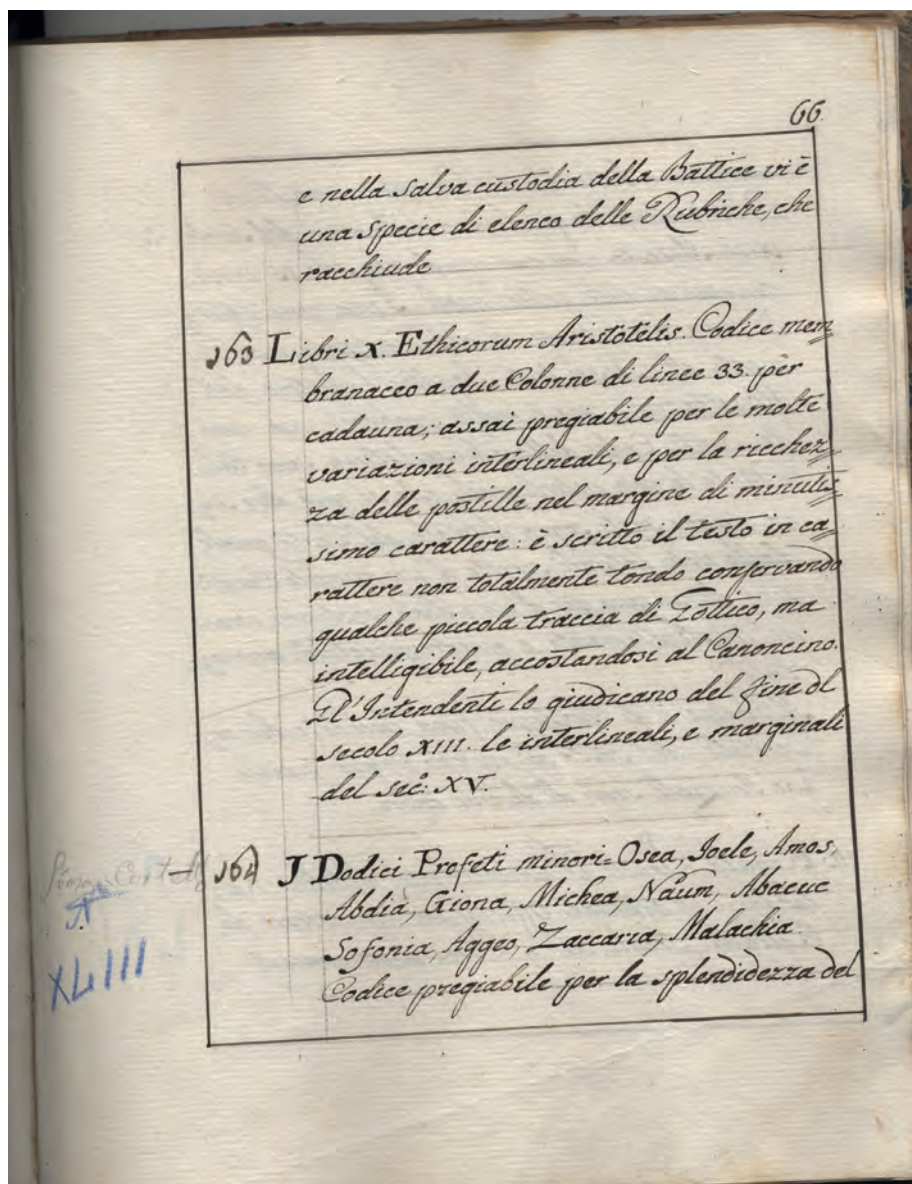 66.
e nella salva custodia della Battice vi è
una specie di elenco delle Rubriche, che
racchiude
163 Libri X. Ethicorum Aristotelis. Codice mem=
branaceo a due Colonne di linee 33. per
cadauna; assai pregiabile per le molte
variazioni interlineali, e per la ricchez=
za delle postille nel margine di minutis=
simo carattere: è scritto il testo in ca=
rattere non totalmente tondo conservando
qualche piccola traccia di Gottico, ma
intelligibile, accostandosi al Canoncino.
Gl'Intendenti lo giudicano del fine dl
secolo XIII. le interlineali, e marginali
del sec: XV.
164 I Dodici Profeti minori= Osea, Joele, Amos,
Abdia, Giona, Michea, Naum, Abacuc
Sofonia, Aggeo, Zaccaria, Malachia.
Codice pregiabile per la splendidezza del
XLIII